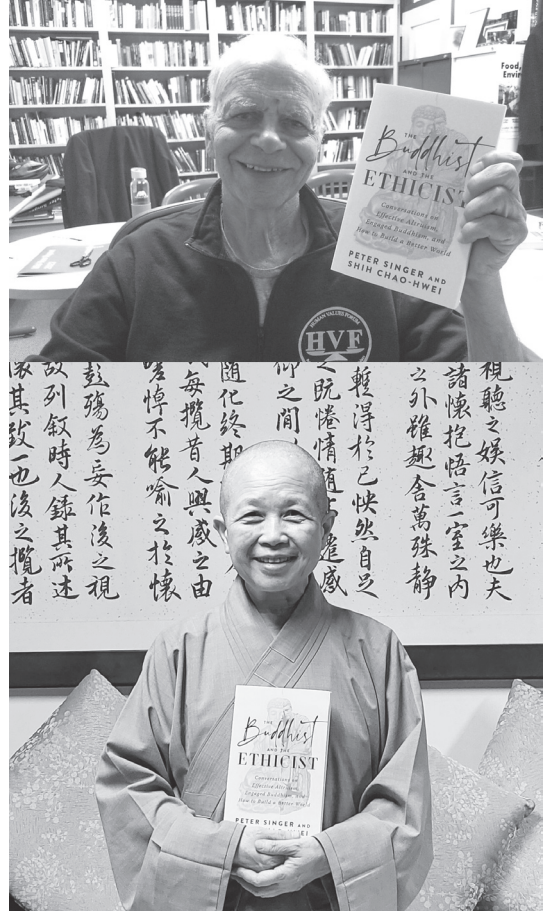 Food,
THE
Buddhist
AND THE
ETHICIST
Conversations on
Effective Altruism,
Engaged Buddhism, and
How to Build a Better World
PETER SINGER AND
SHIH CHAO-HWEI
HUMAN VALUES FORUM
HVF
視聽之娛信可樂也夫
諸懷抱悟言一室之內
之外雖趣舍萬殊靜
得於己怏然自足
之既惓情隨遷感
仰之間
隨化終期
每攬昔人興感之由
嗟悼不能喻之於懷
彭殤為妄作後之視
故列敘時人錄其所述
懷其致一也後之攬者
THE
Buddhist
AND THE
ETHICIST
Conversations on
Effective Altruism,
Engaged Buddhism, and
How to Build a Better World
PETER SINGER AND